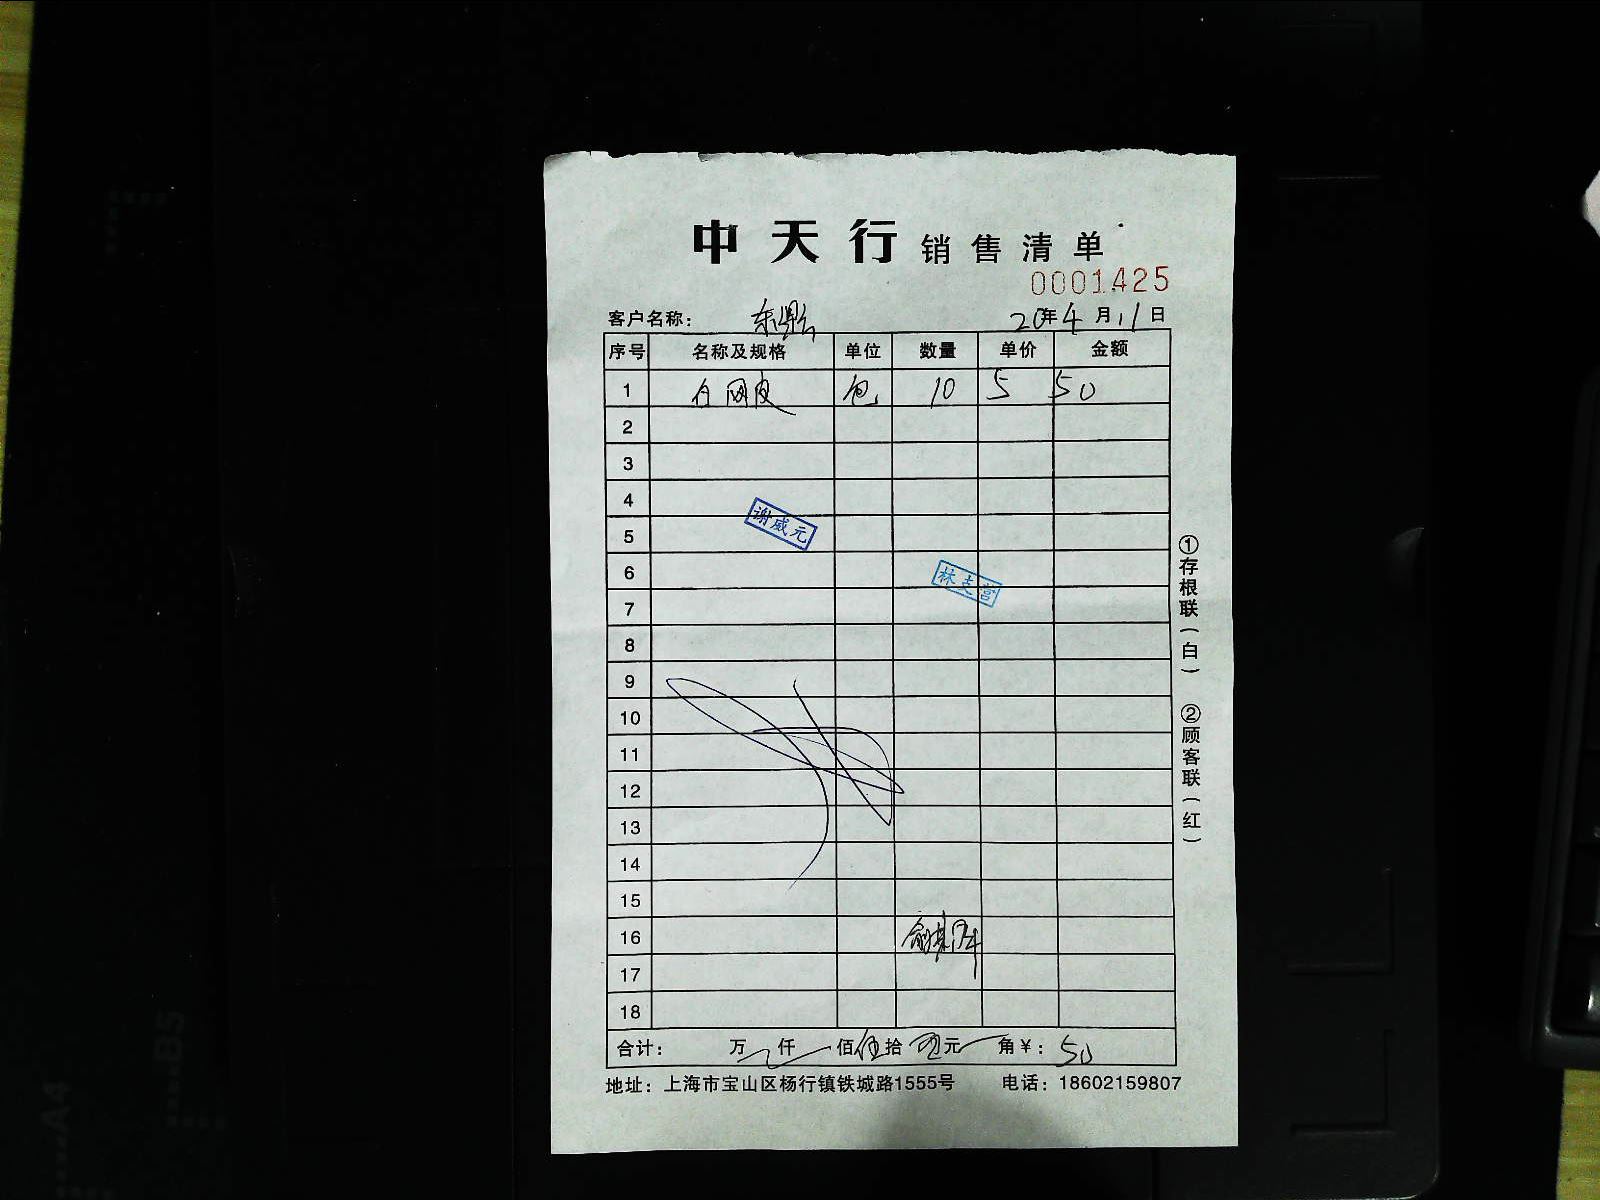 中天行 销售清单
0001425
客户名称： 20年4月11日
序号 名称及规格 单位 数量 单价 金额
1 白网皮 包 10 5 50
2
3
4
谢威元
5
6
林支营
7
8
9
10
11
12
13
14
15
16
17
18
合计： 万 仟 佰伍拾 元 角￥：50
地址：上海市宝山区杨行镇铁城路1555号 电话：18602159807
①存根联（白） ②顾客联（红）